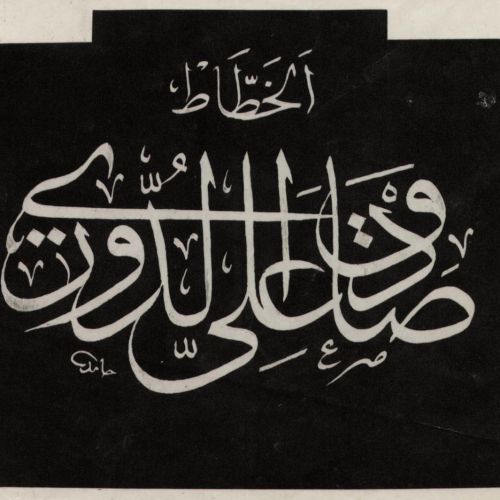 اَلخَطَّاط
صَادِق عَلِيّ الدُّوري
حامد